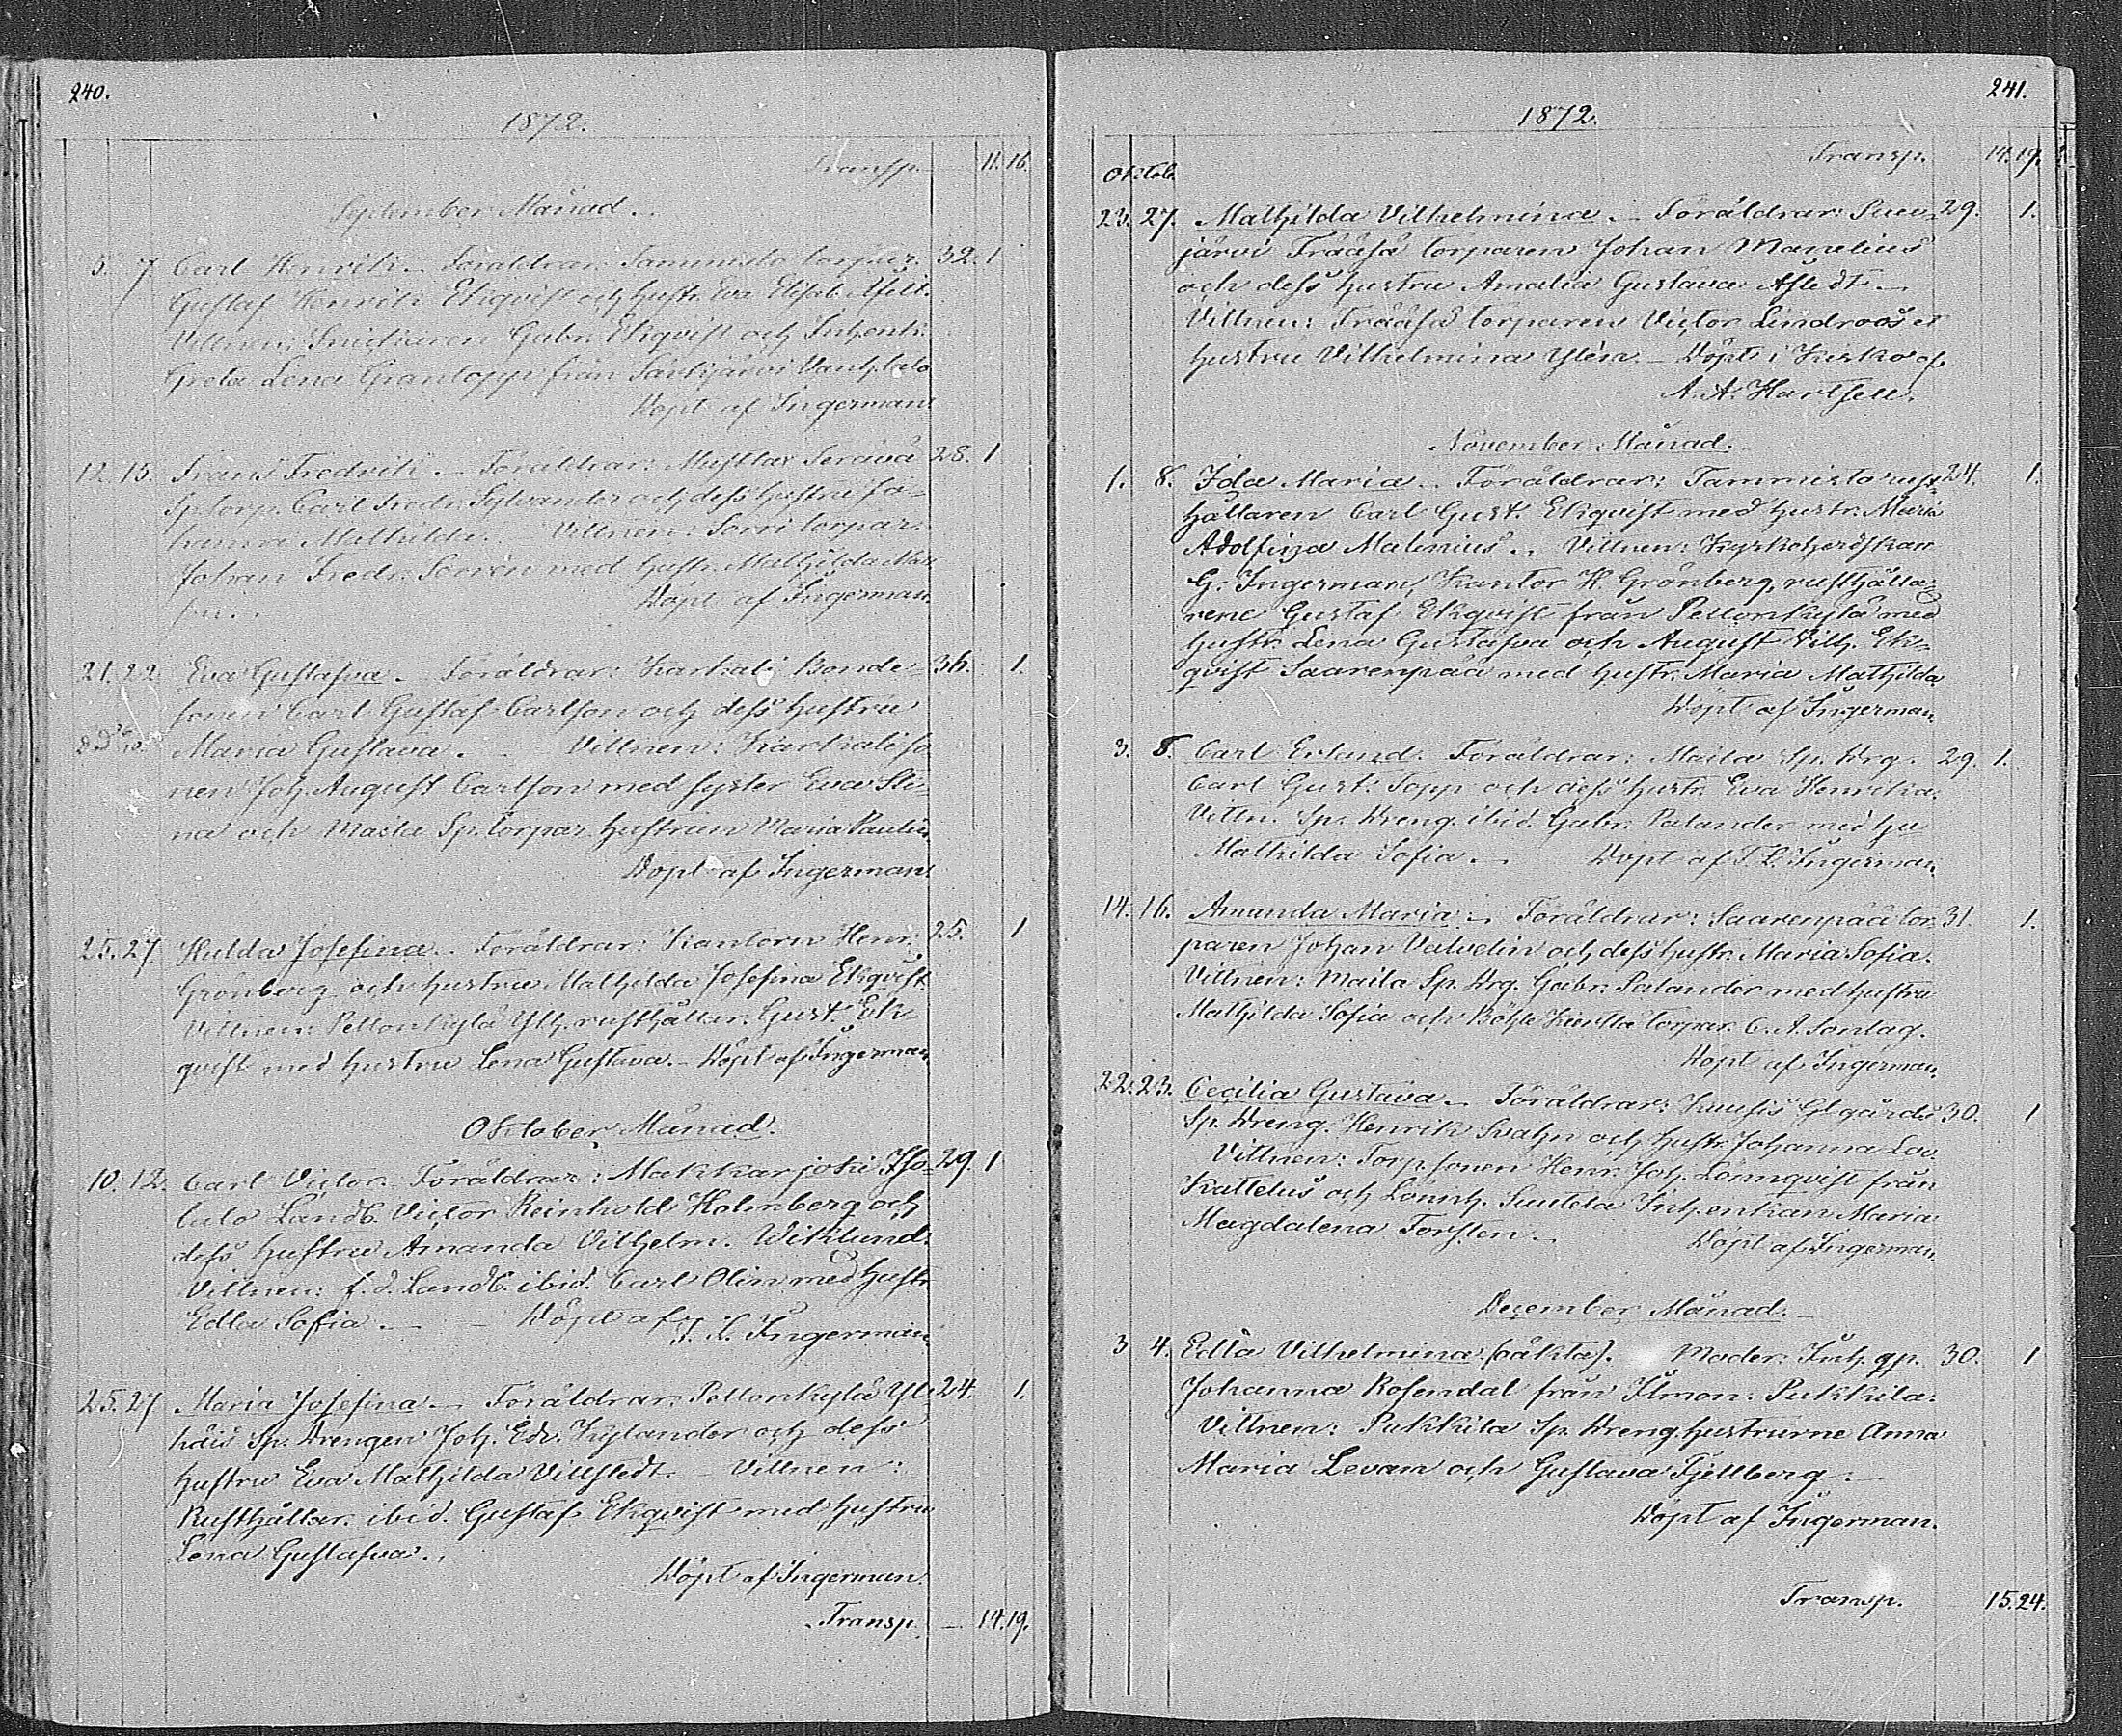 240.
1872.
Transp. 11. 16.
September Månad.
5. 7. Carl Henrik. Föräldrar: Tammisto torpar. 32. 1
Gustaf Henrik Ekqvist och hustr. Eva Elisab.
Vittnen: Snickaren Gabr. Ekqvist och Inhents.
Greta Lena Grantopp från Särkjärvi Vanhtalo
Döpt af Ingerman.
12. 15. Frans Fredrik. Föräldrar: Mustlax 28. 1
Sp. torp. Carl Fredr. Sylvander och dess hustru Jo-
hanna Mathilda. Vittnen: Sorri torpar.
Johan Fredr. Soorén med hustr. Mathilda
Döpt af Ingerman.
21. 22. Eva Gustafva. Föräldrar: Karkali Bonde- 36. 1.
sonen Carl Gustaf Carlson och dess hustru
Maria Gustava. Vittnen: Karkali so
nen Joh. August Carlson med syster Eva Sti-
na och Maila Sp. torpar. hustrun Maria Paulin.
Döpt af Ingerman.
25. 27 Hulda Josefina. Föräldrar: Kantorn Henr. 25. 1
Grönberg och hustru Mathilda Josefina Ekqvist
Vittnen: Pellonkylä Ylh. rusthållar. Gust. Ek-
qvist med hustru Lena Gustava. Döpt af Ingerman.
Oktober Månad.
10. 12. Carl Victor. Föräldrar: Makkarjoki Iso- 29. 1
talo Landb. Victor Reinhold Holmberg och
dess hustru Amanda Vilhelm. Wiklund.
Vittnen: f. d. Landb. ibid. Carl Olin med hustr.
Edla Sofia. Döpt af J. L. Ingerman.
25. 27 Maria Josefina. Föräldrar: Pellonkylä Yli- 24. 1.
häis Sp. Drengen Joh. Edv. Kylander och dess
hustru Eva Mathilda Villstedt. Vittnen:
Rusthållar. ibid. Gustaf Ekqvist med hustru
Lena Gustafva.
Döpt af Ingerman.
Transp. 14. 19.
241.
1872.
Transp. 14. 19.
Oktob.
23. 27. Mathilda Vilhelmina. Föräldrar: Suo- 29. 1.
järvi Frääsä torparen Johan Manelius
och dess hustru Amalia Gustava Afledt.
Vittnen: Frääsä torparen Victor Lindroos o
hustru Vilhelmina Ylén. Döpt i Kisko af
A. A. Hartsell.
November Månad.
1. 8. Ida Maria. Föräldrar: Tammisto rust- 24. 1.
hållaren Carl Gust. Ekqvist med hustr. Maria
Adolfina Malenius. Vittnen: Kyrkoherdskan
G. Ingerman, Kantor H. Grönberg, rusthålla-
rene Gustaf Ekqvist från Pellonkylä med
hustr. Lena Gustafva och August Vilh. Ek-
qvist Saarenpää med hustr. Maria Mathilda
Döpt af Ingerman.
3. 8. Carl Erland. Föräldrar: Maila Sp. Drg. 29. 1.
Carl Gust. Topp och dess hustr. Eva Henrika.
Vittn. Sp. Dreng. ibid. Gabr. Palander med hu
Mathilda Sofia. Döpt af J. L. Ingerman.
14. 16. Amanda Maria. Föräldrar: Saarenpää tor- 31. 1.
paren Johan Valvelin och dess hustr. Maria Sofia.
Vittnen: Maila Sp. Drg. Gabr. Salander med hustru
Mathilda Sofia och Böhle torpar. C. A. Sontag.
Döpt af Ingerman.
22. 23. Cecilia Gustava. Föräldrar: Gl gårds 30. 1
Sp. Dreng. Henrik Svahn och hustr. Johanna Lov.
Vittnen: Torp. sonen Henr. Joh. Lönnqvist från
Kattelus och Lönnh. Suutela Inhenkan Maria
Magdalena Forsten. Döpt af Ingerman.
December Månad.
3 4. Edla Vilhelmina (oäkta). Moder: Inh. qp. 30. 1
Johanna Rosendal från Ilmon. Pukkila.
Vittnen: Pukkila Sp. Dreng. hustrurne Anna
Maria Levan och Gustava Fjellberg.
Döpt af Ingerman.
Transp. 15. 24.